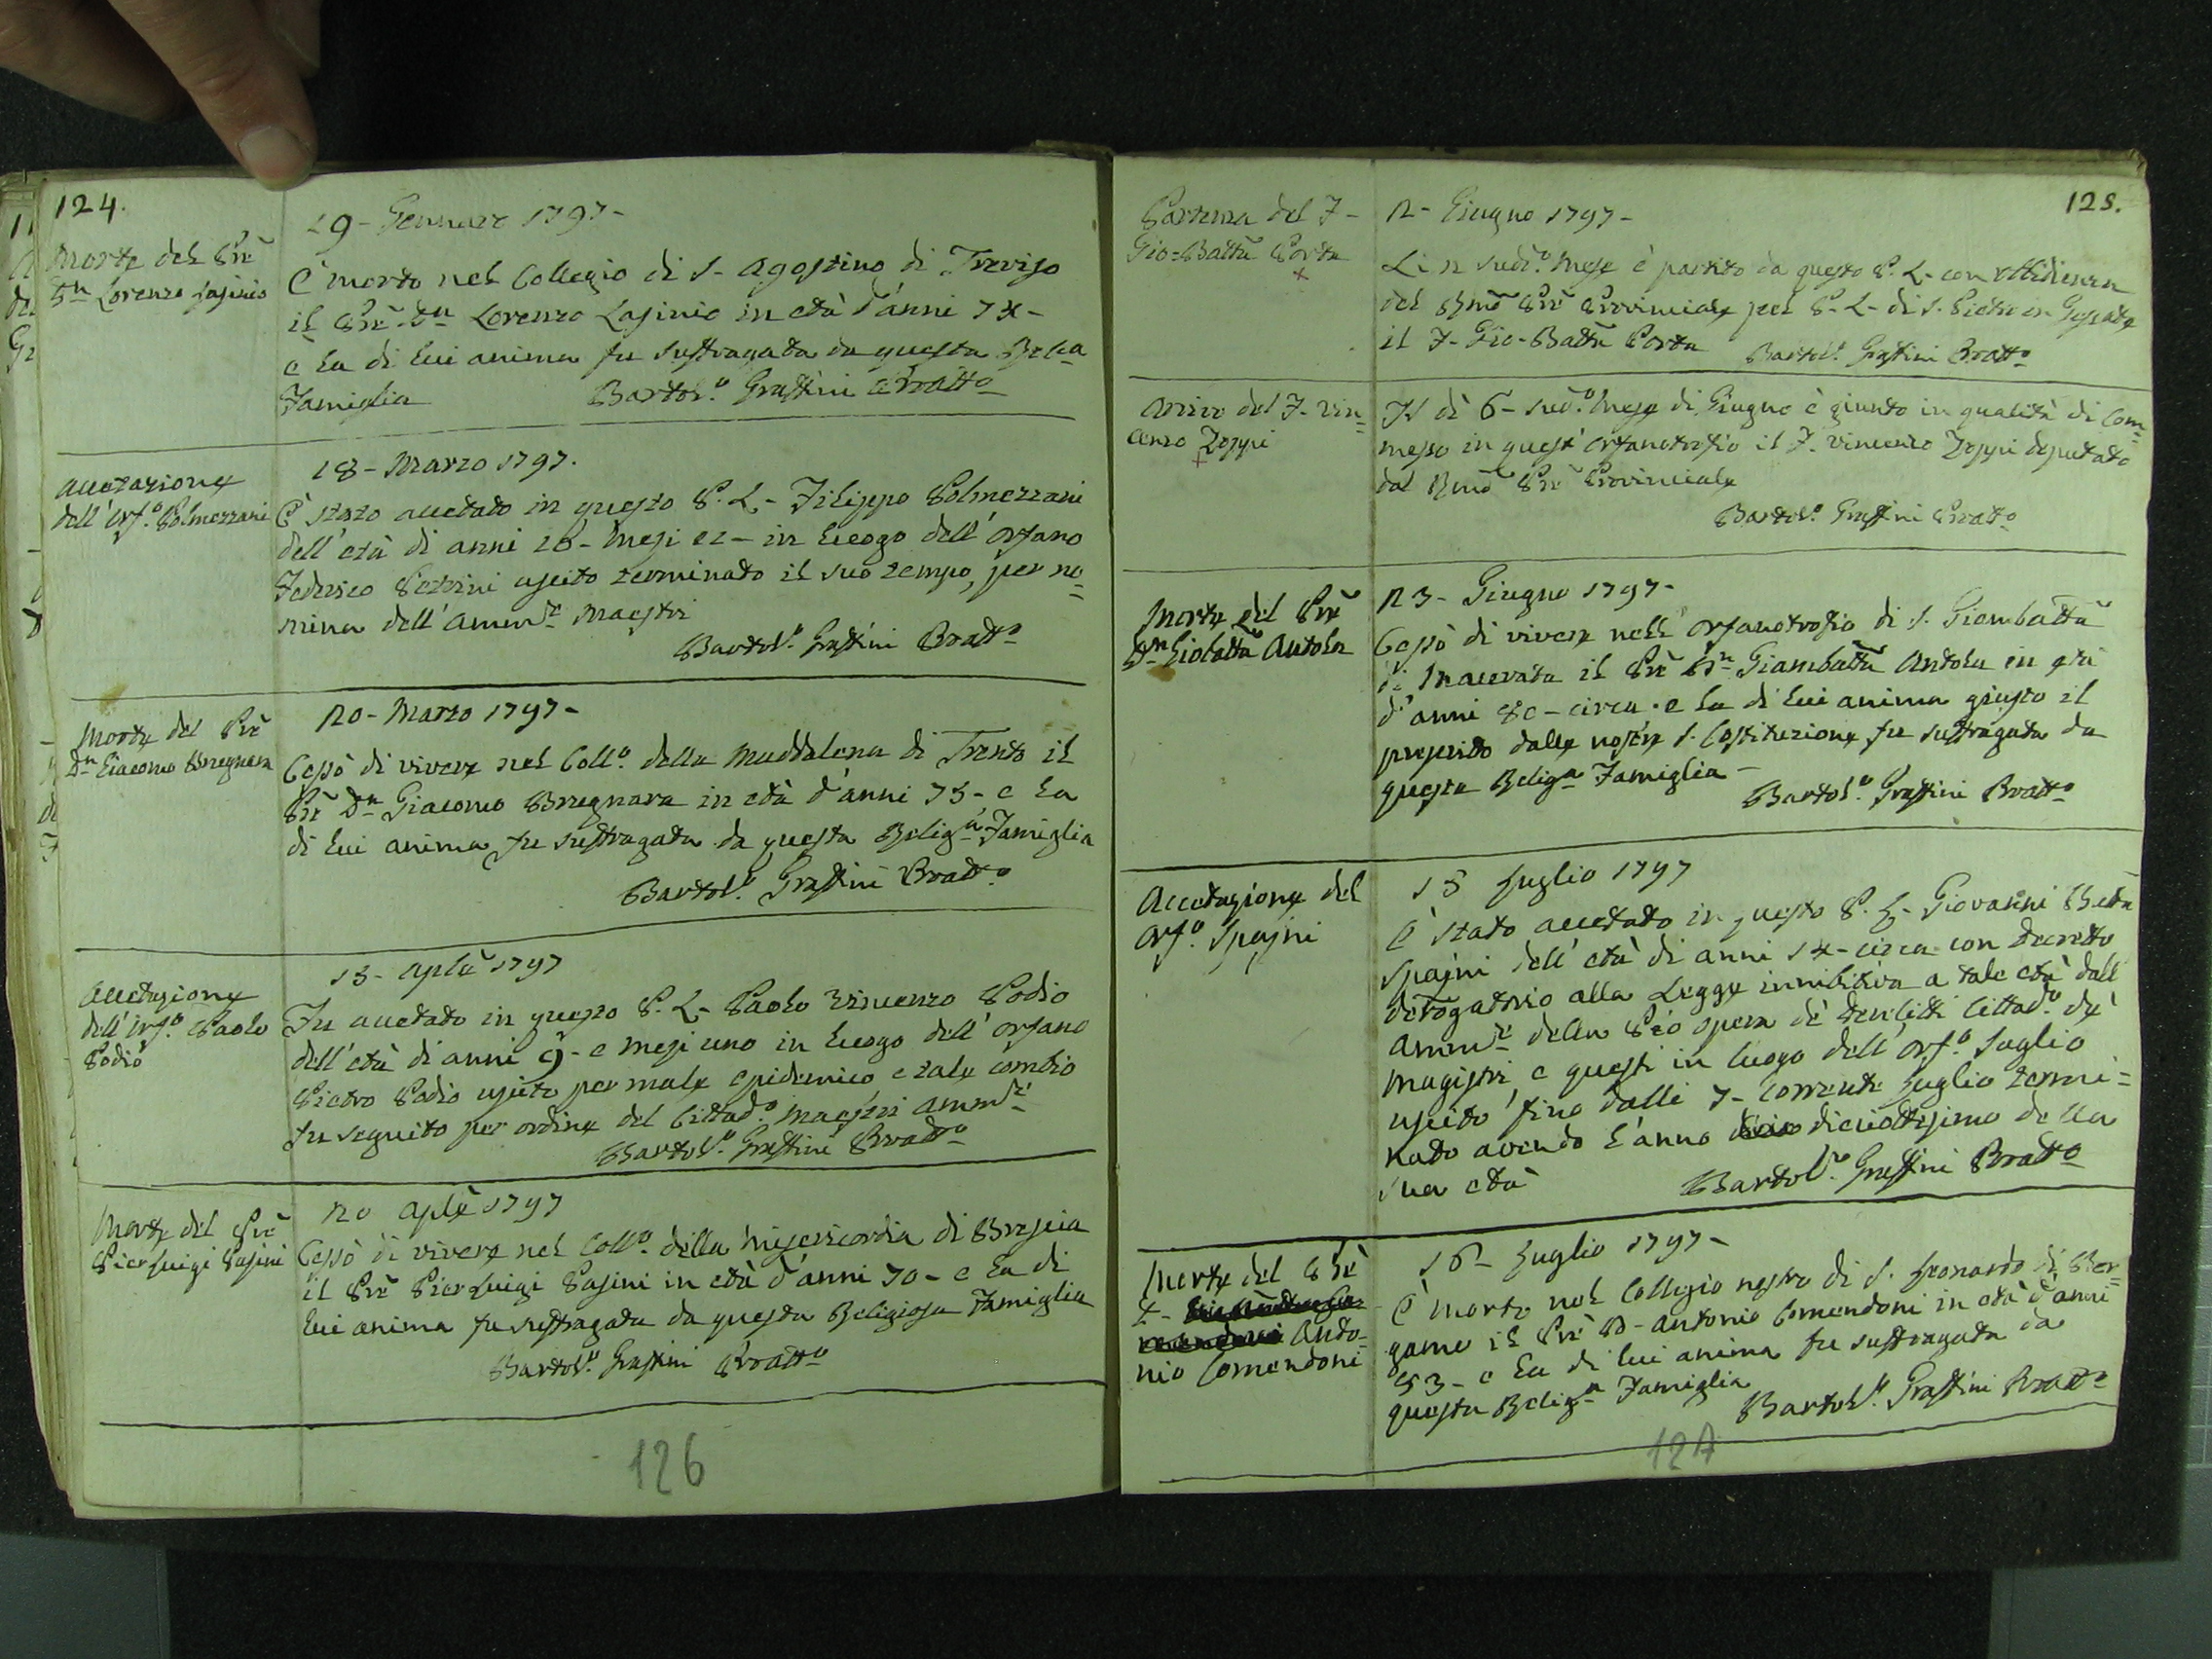 124.
Morte del Prē
Dn Lorenzo Lasinio
19 - Gennaro 1797 -
È morto nel Collegio di S. Agostino di Treviso
il Prē Dn Lorenzo Lasinio in età d'anni 74 -
e la di lui anima fu suffragata da questa
Famiglia Bartol.o Graffini
Accetazione
dell'Orf.o Polmezzani
18 - Marzo 1797.
È stato accetato in questo P. L. Filippo Polmezzani
dell'età di anni 10 - Mesi 11 - in luogo dell'Orfano
Federico Petrini uscito terminato il suo tempo, per no=
mina dell'Amm.re Maestri
Bartol.o Graffini
Morte del Prē
Dn Giacomo Bregnara
20 - Marzo 1797 -
Cessò di vivere nel Coll.o della Maddalena di Trento il
Prē Dn Giacomo Bregnara in età d'anni 75 - e la
di lui anima fu suffragata da questa Relig.a Famiglia
Bartol.o Graffini
Accetazione
dell'Orf.o Paolo
Podio
13 - Aplē 1797
Fu accetato in questo P. L. Paolo Vincenzo Podio
dell'età di anni 9 - e mesi uno in luogo dell'Orfano
Pietro Podio uscito per male epidemico e tale cambio
fu seguito per ordine del Cittad.o Maestri Amm.re
Bartol.o Graffini
Morte del Prē
Pier Luigi Pasini
20 Aplē 1797
Cessò di vivere nel Coll.o della Misericordia di Brescia
il Prē Pier Luigi Pasini in età d'anni 70 - e la di
lui anima fu suffragata da questa Religiosa Famiglia
Bartol.o Graffini
126
125.
Partenza del F.
Gio=Battā Porta
+
2 - Giugno 1797 -
Li 2 sud.o Mese è partito da questo P. L. con ubbidienza
del Rmō Prē Provinciale pel P. L. di S. Pietro in Gessate
il F. Gio-Battā Porta Bartol.o Graffini
Arivo del F. Vin=
cenzo Zoppi
+
Il dì 6 - sud.o Mese di Giugno è giunto in qualità di Com=
messo in quest'Orfanotrofio il F. Vincenzo Zoppi deputato
dal Rmō Prē Provinciale
Bartol.o Graffini
Morte del Prē
Dn Giobattā Antola
23 - Giugno 1797 -
Cessò di vivere nell'Orfanotrofio di S. Giambattā
di Macerata il Prē Dn Giambattā Antola in età
d'anni 80 - circa - e la di lui anima giusto il
prescritto dalle nostre S. Costituzione fu suffragata da
questa Relig.a Famiglia -
Bartol.o Graffini
Accetazione del
Orf.o Spajni
15 Luglio 1797
È stato accetato in questo P. L. Giovanni
Spajni dell'età di anni 14 - circa con Decreto
derogatorio alla Legge innibitiva a tale età dall
Amm.re della Pio opera de' Derelitti Cittad.o de'
Magistri, e questi in luogo dell'Orf.o Saglio
uscito fino dalli 7 - corrente Luglio termi=
nato avendo l'anno diciottesimo della
sua età Bartol.o Graffini
Morte del Prē
Anto=
nio Comendoni
16 - Luglio 1797 -
È morto nel Collegio nostro di S. Leonardo di Ber=
gamo il Prē D. Antonio Comendoni in età d'anni
53 - e la di lui anima fu suffragata da
questa Relig.a Famiglia
Bartol.o Graffini
127